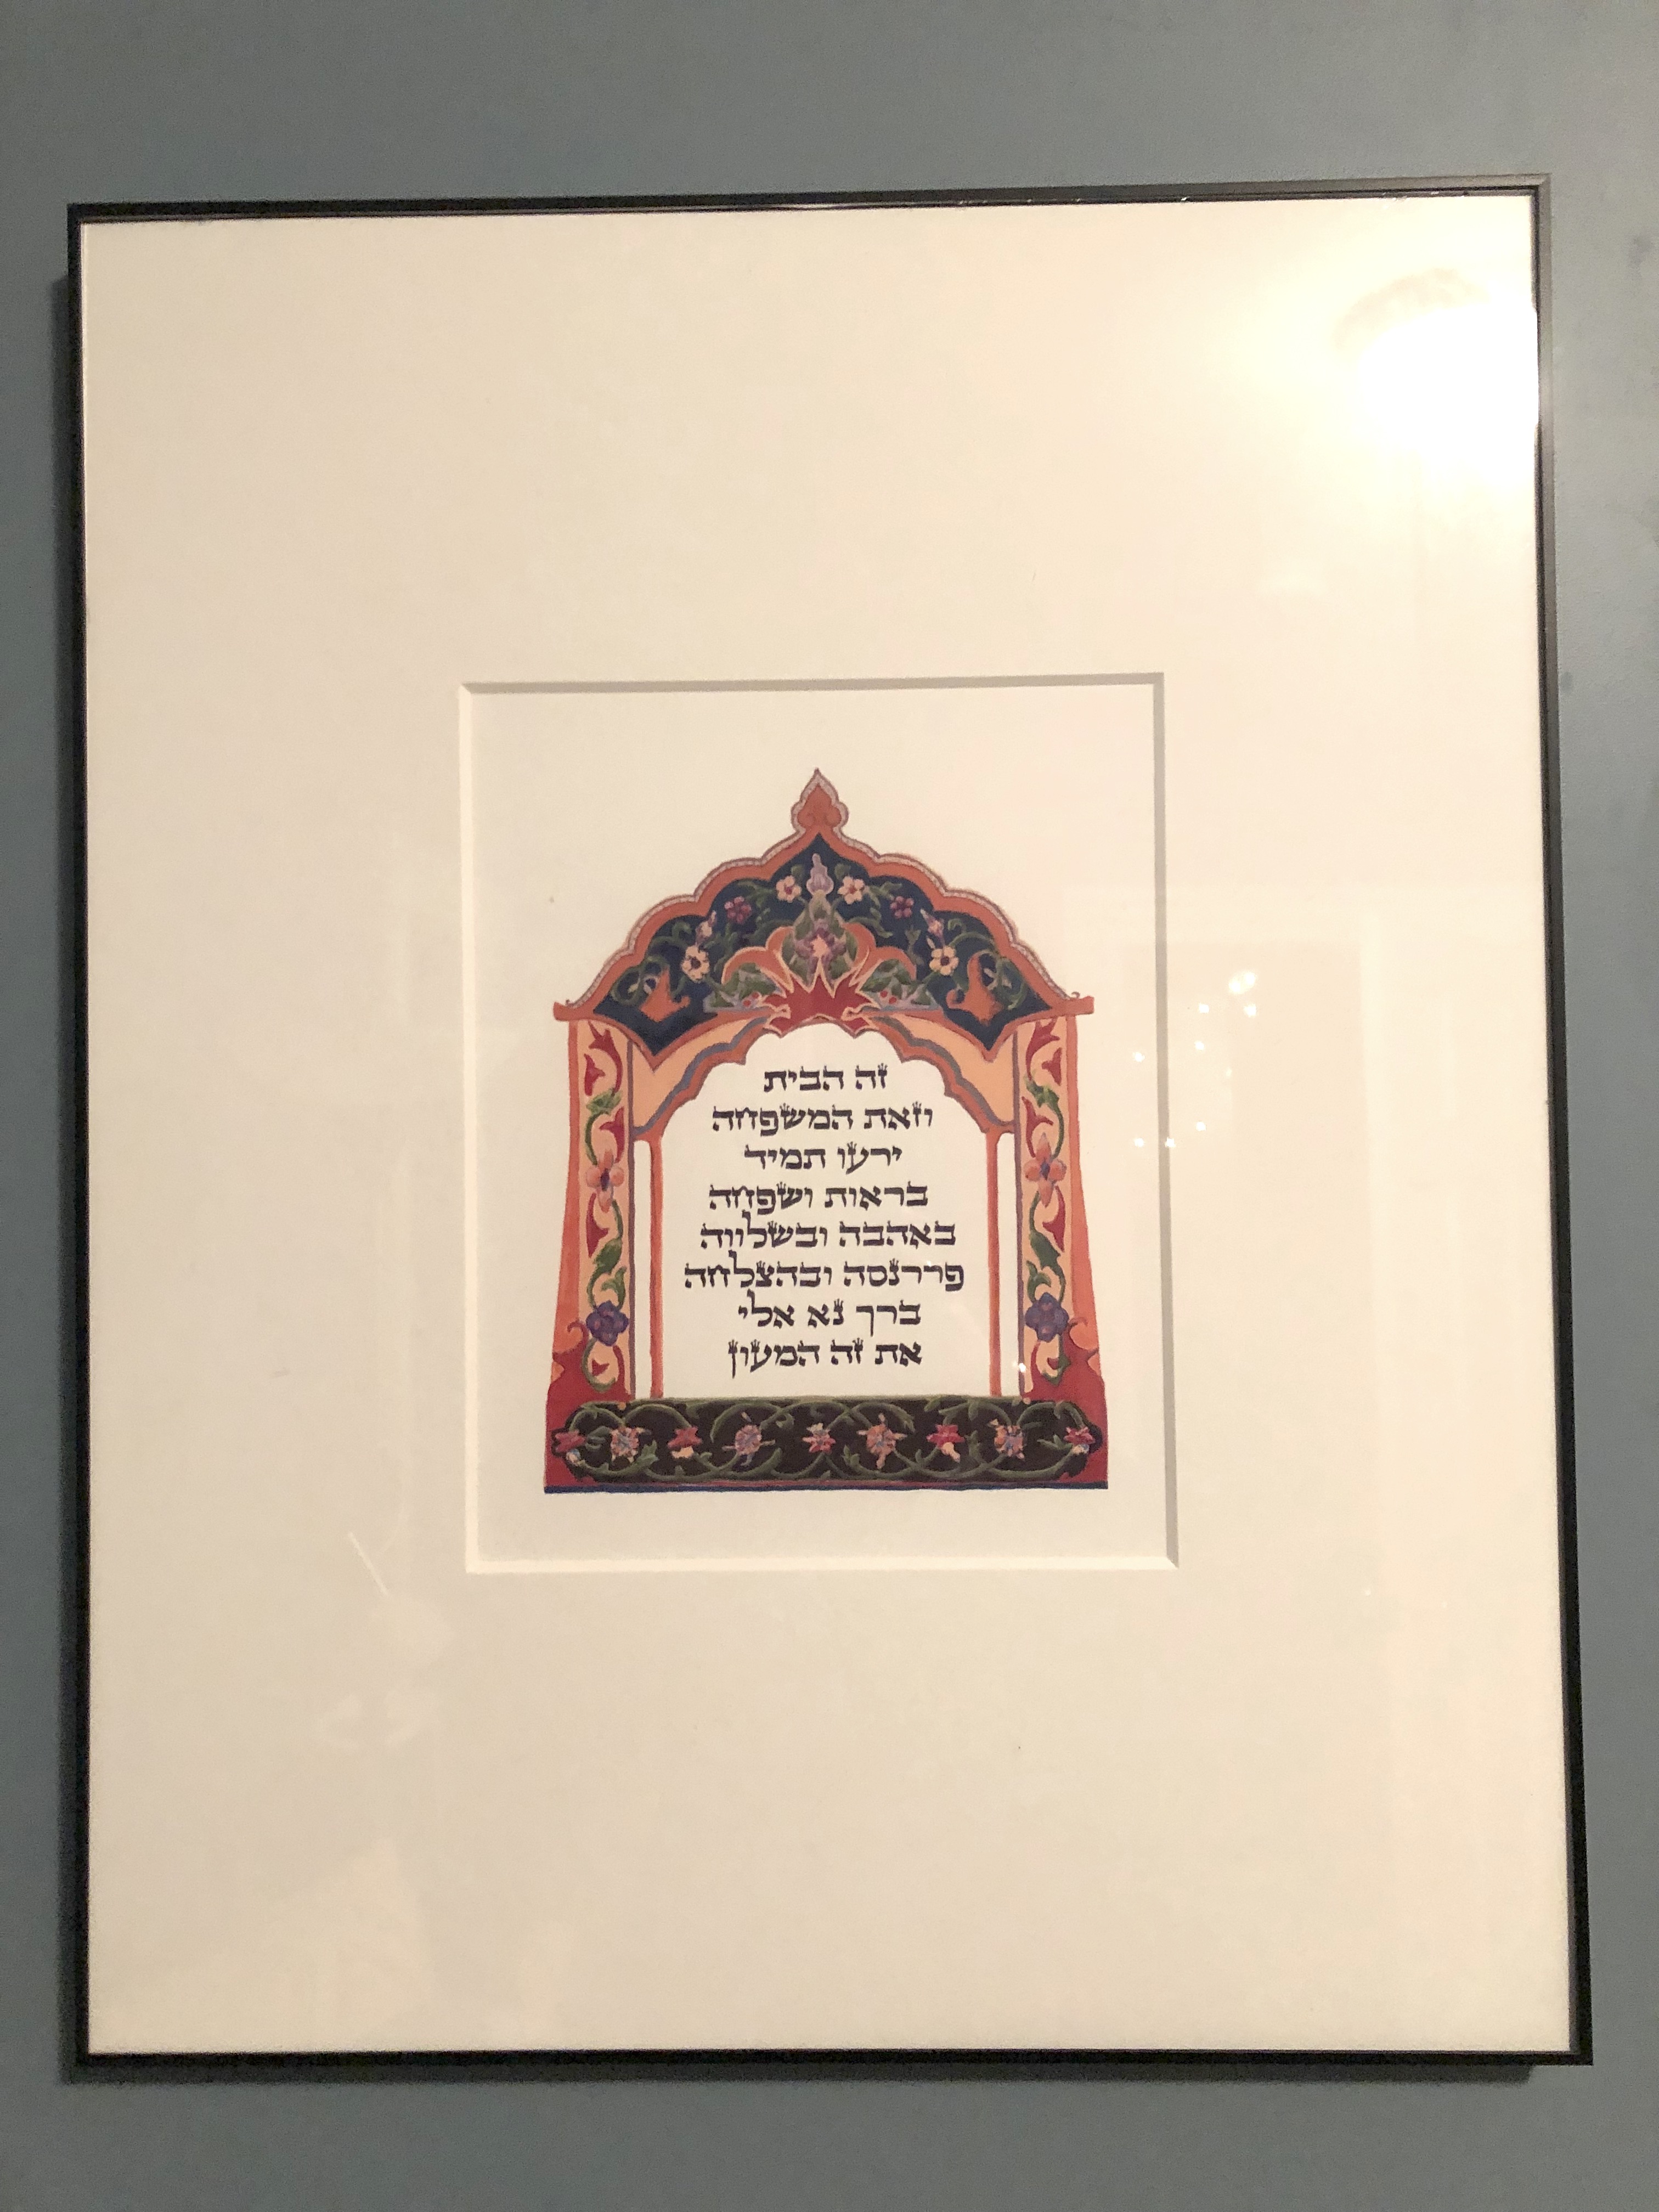 זה הבית
וזאת המשפחה
ירעו תמיד
בראות ושפחה
באהבה ובשלווה
פררנסה ובהצלחה
ברך נא אלי
את זה המעון